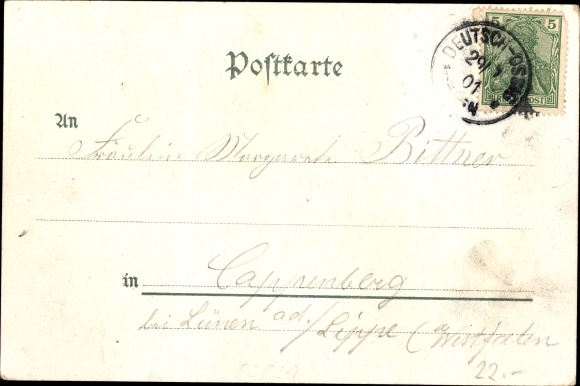 Postkarte
5
DEUTSCH-OSS
29
01
REICHSPOST
An
Fräulein Margarete Bittner
in Cappenberg
bei Lünen ad./Lippe (Westfalen
22.-